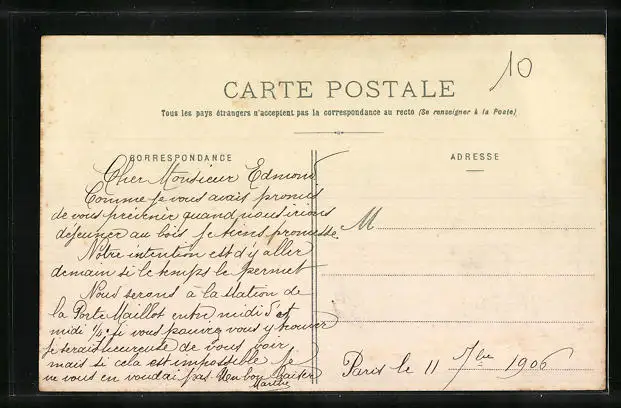 10
CARTE POSTALE
Tous les pays étrangers n'acceptent pas la correspondance au recto (Se renseigner à la Poste)
CORRESPONDANCE
Cher Monsieur Edmond
Comme je vous avais promis
de vous prévenir quand nous irions
déjeuner au bois je tiens promesse.
Notre intention est d'y aller
demain si le temps le permet
Nous serons à la station de
la Porte Maillot entre midi et
midi ½ si vous pouvez vous y trouver
je serais heureuse de vous voir
mais si cela est impossible je
ne vous en voudai pas. Un bon Baiser
Marthe
ADRESSE
M
Paris le 11 7bre 1906